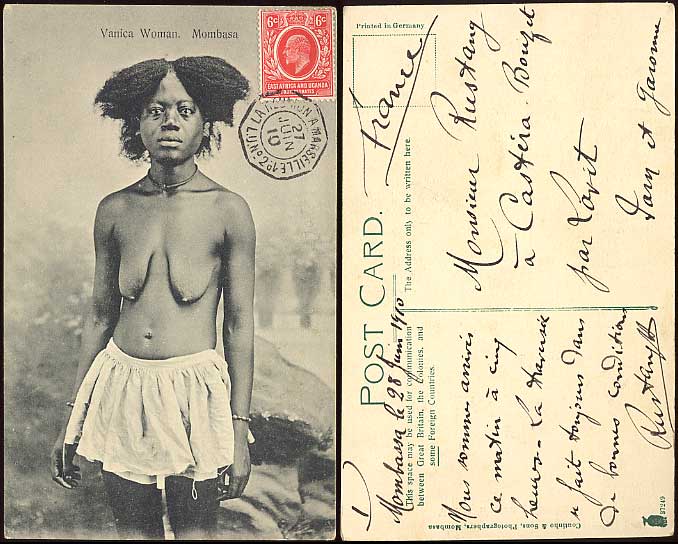 Vanica Woman. Mombasa
6c 6c
EAST AFRICA AND UGANDA
PROTECTORATES
LA REUNION A MARSEILLE
27
JUIN
10
Printed in Germany
France
The Address only to be written here.
Monsieur Rustang
à Castéra-Bouzet
par Lavit
Tarn et Garonne
POST CARD.
This space may be used for communication
between Great Britain, the Colonies, and
some Foreign Countries.
Mombassa le 28 Juin 1910
Nous sommes arrivés
ce matin à cinq
heures. La traversée
se fait toujours dans
de bonnes conditions
Rustang
Coutinho & Sons, Photographers, Mombasa
B7249